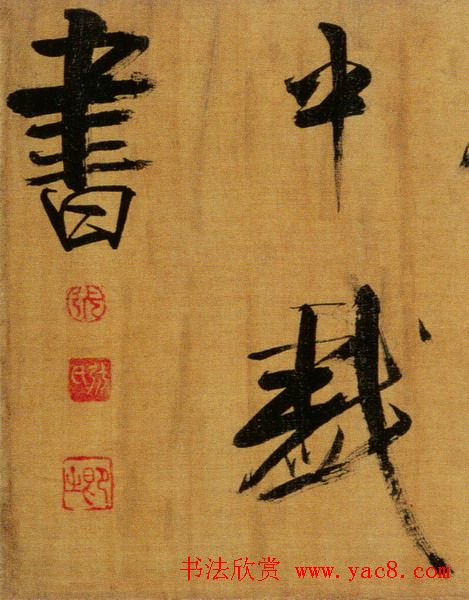 中
書
即之
书法欣赏 www.yac8.com